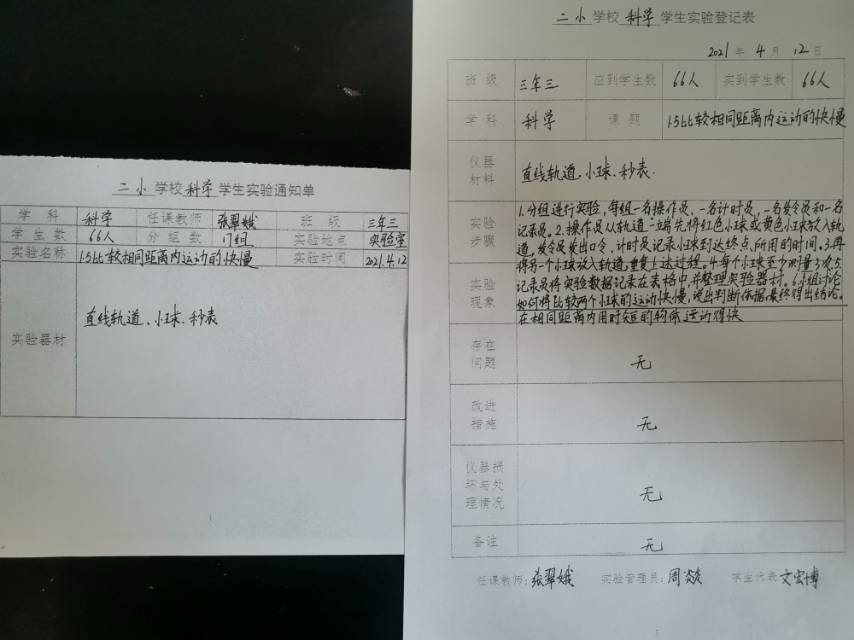 二小学校科学学生实验通知单
学科 科学 任课教师 张翠娥 班级 三年三
学生数 66人 分组数 17组 实验地点 实验室
实验名称 1.5比较相同距离内运动的快慢 实验时间 2021.4.12
实验器材 直线轨道、小球、秒表
二小学校科学学生实验登记表
2021年4月12日
班级 三年三 应到学生数 66人 实到学生数 66人
学科 科学 课题 1.5比较相同距离内运动的快慢
仪器
材料
直线轨道、小球、秒表.
实验
步骤
实验
现象
1.分组进行实验,每组一名操作员,一名计时员,一名发令员和一名
记录员。2.操作员从轨道一端先将红色小球或黄色小球放入轨
道,发令员发出口令,计时员记录小球到达终点所用的时间。3.再
将另一个小球放入轨道,重复上述过程。4.每个小球至少测量3次。5.
记录员将实验数据记录在表格中,并整理实验器材。6.小组讨论
如何将比较两个小球的运动快慢,说出判断依据,最终得出结论。
在相同距离内用时短的物体运动得快
存在
问题
无
改进
措施
无
仪器损
坏与处
理情况
无
备注 无
任课教师:张翠娥 实验管理员:周焱 学生代表 文宏博